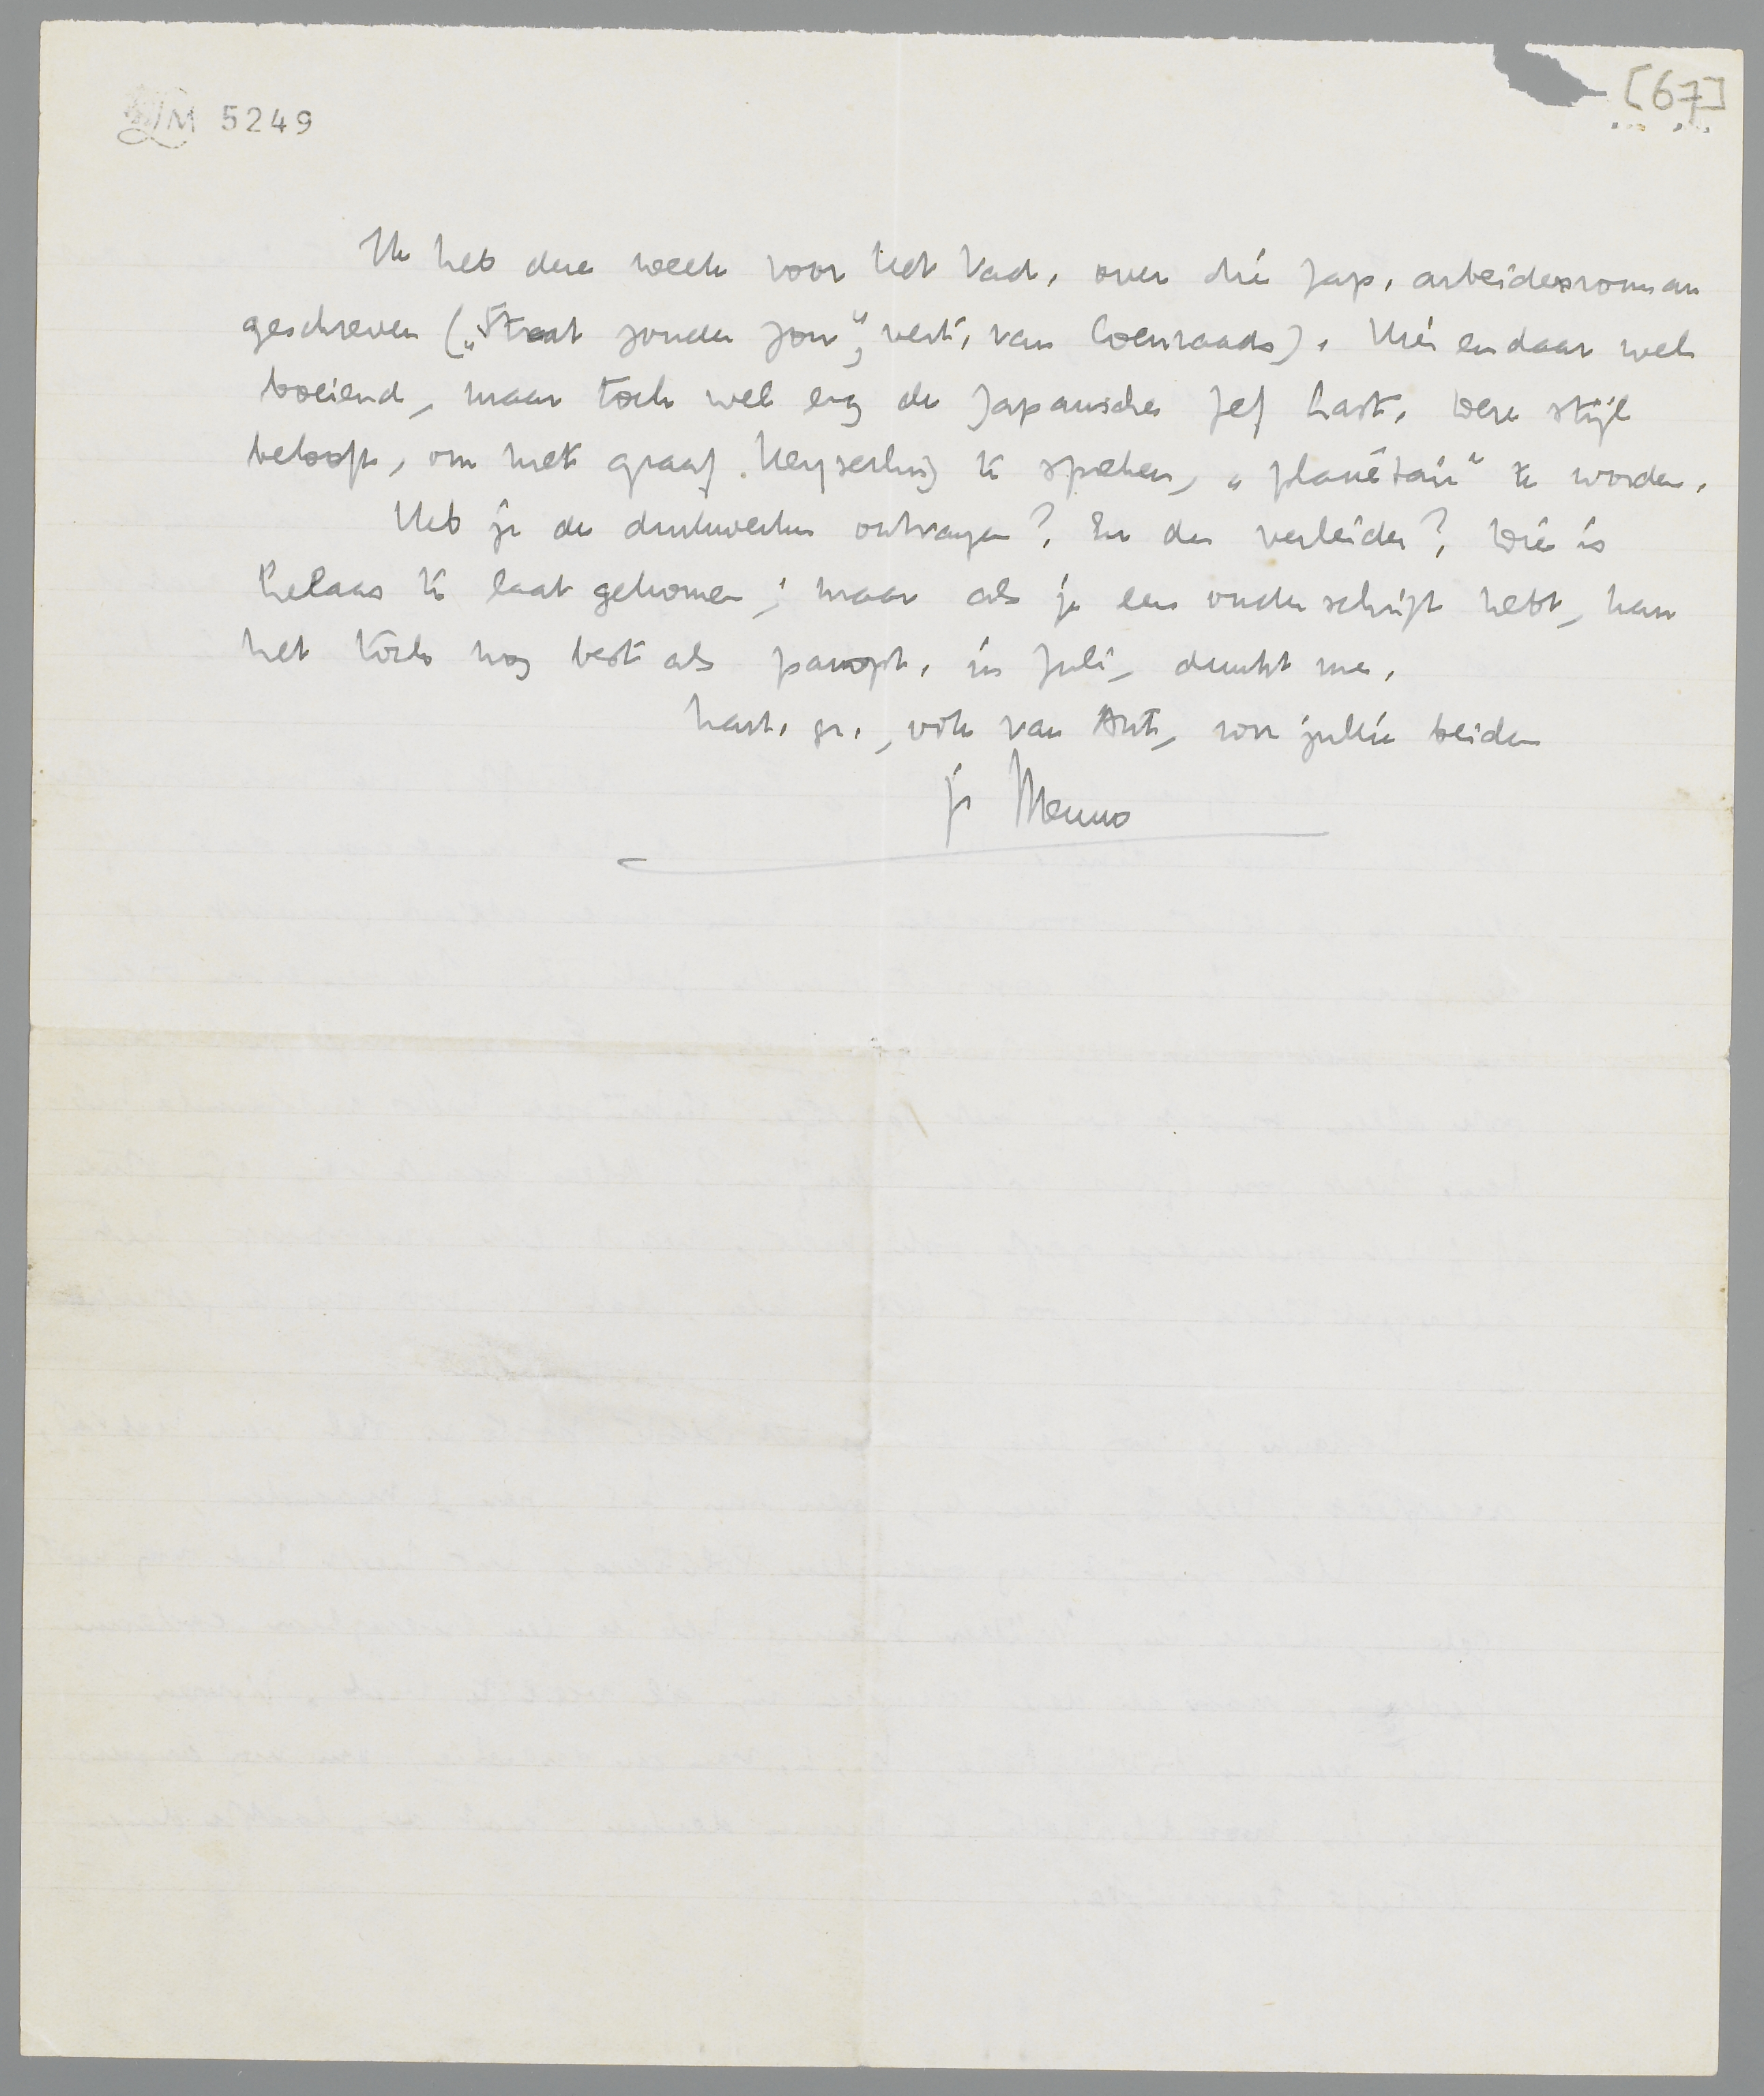 LM 5249
[67]
Ik heb deze week voor Het Vad. over die Jap. arbeidersroman
geschreven („Straat zonder zon", vert. van Coenraads). Hier en daar wel
boeiend, maar toch wel erg de Japansche Jef Last. Deze stijl
belooft, om met graaf Keyserling te spreken, „planetair" te worden.
Heb je de drukwerken ontvangen? En den verleider? Die is
helaas te laat gekomen; maar als je een onderschrift hebt, kan
het toch nog best als panopt. in Juli, dunkt me.
hart. gr., ook van Ant, voor jullie beiden
je Menno